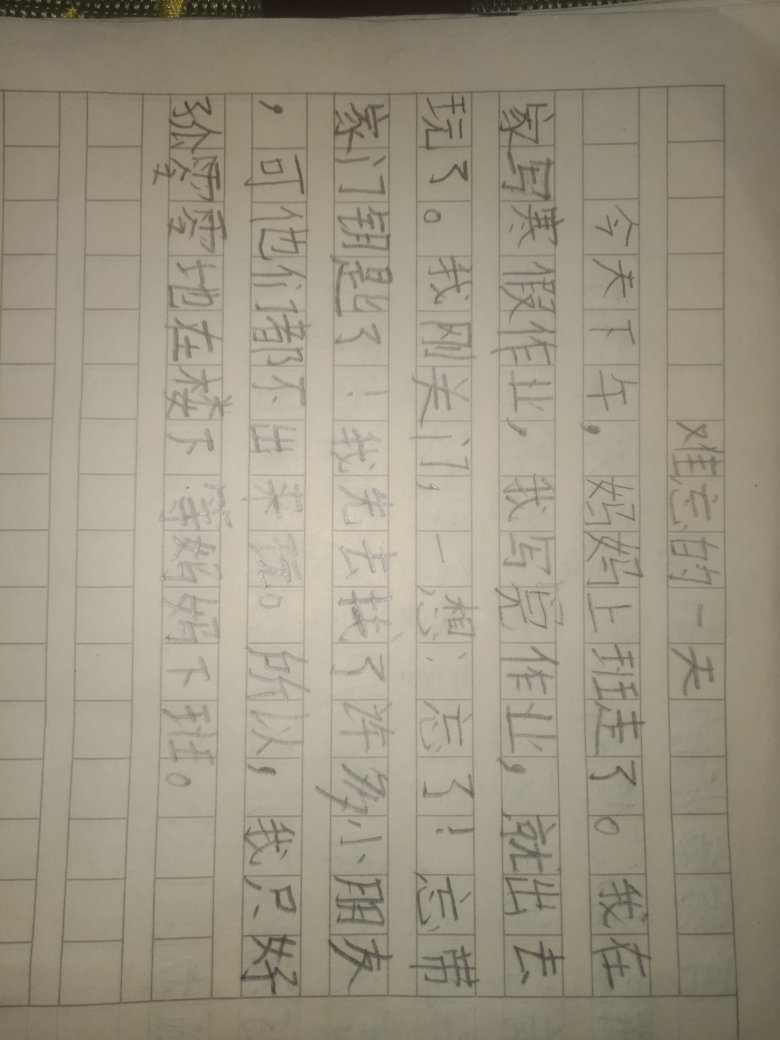 难忘的一天
今天下午，妈妈上班走了。我在
家写寒假作业，我写完作业，就出去
玩了。我刚关门，一想，忘了！忘带
家门钥匙了！我先去找了许多小朋友
，可他们都不出来玩。所以，我只好
孤零零地在楼下等妈妈下班。